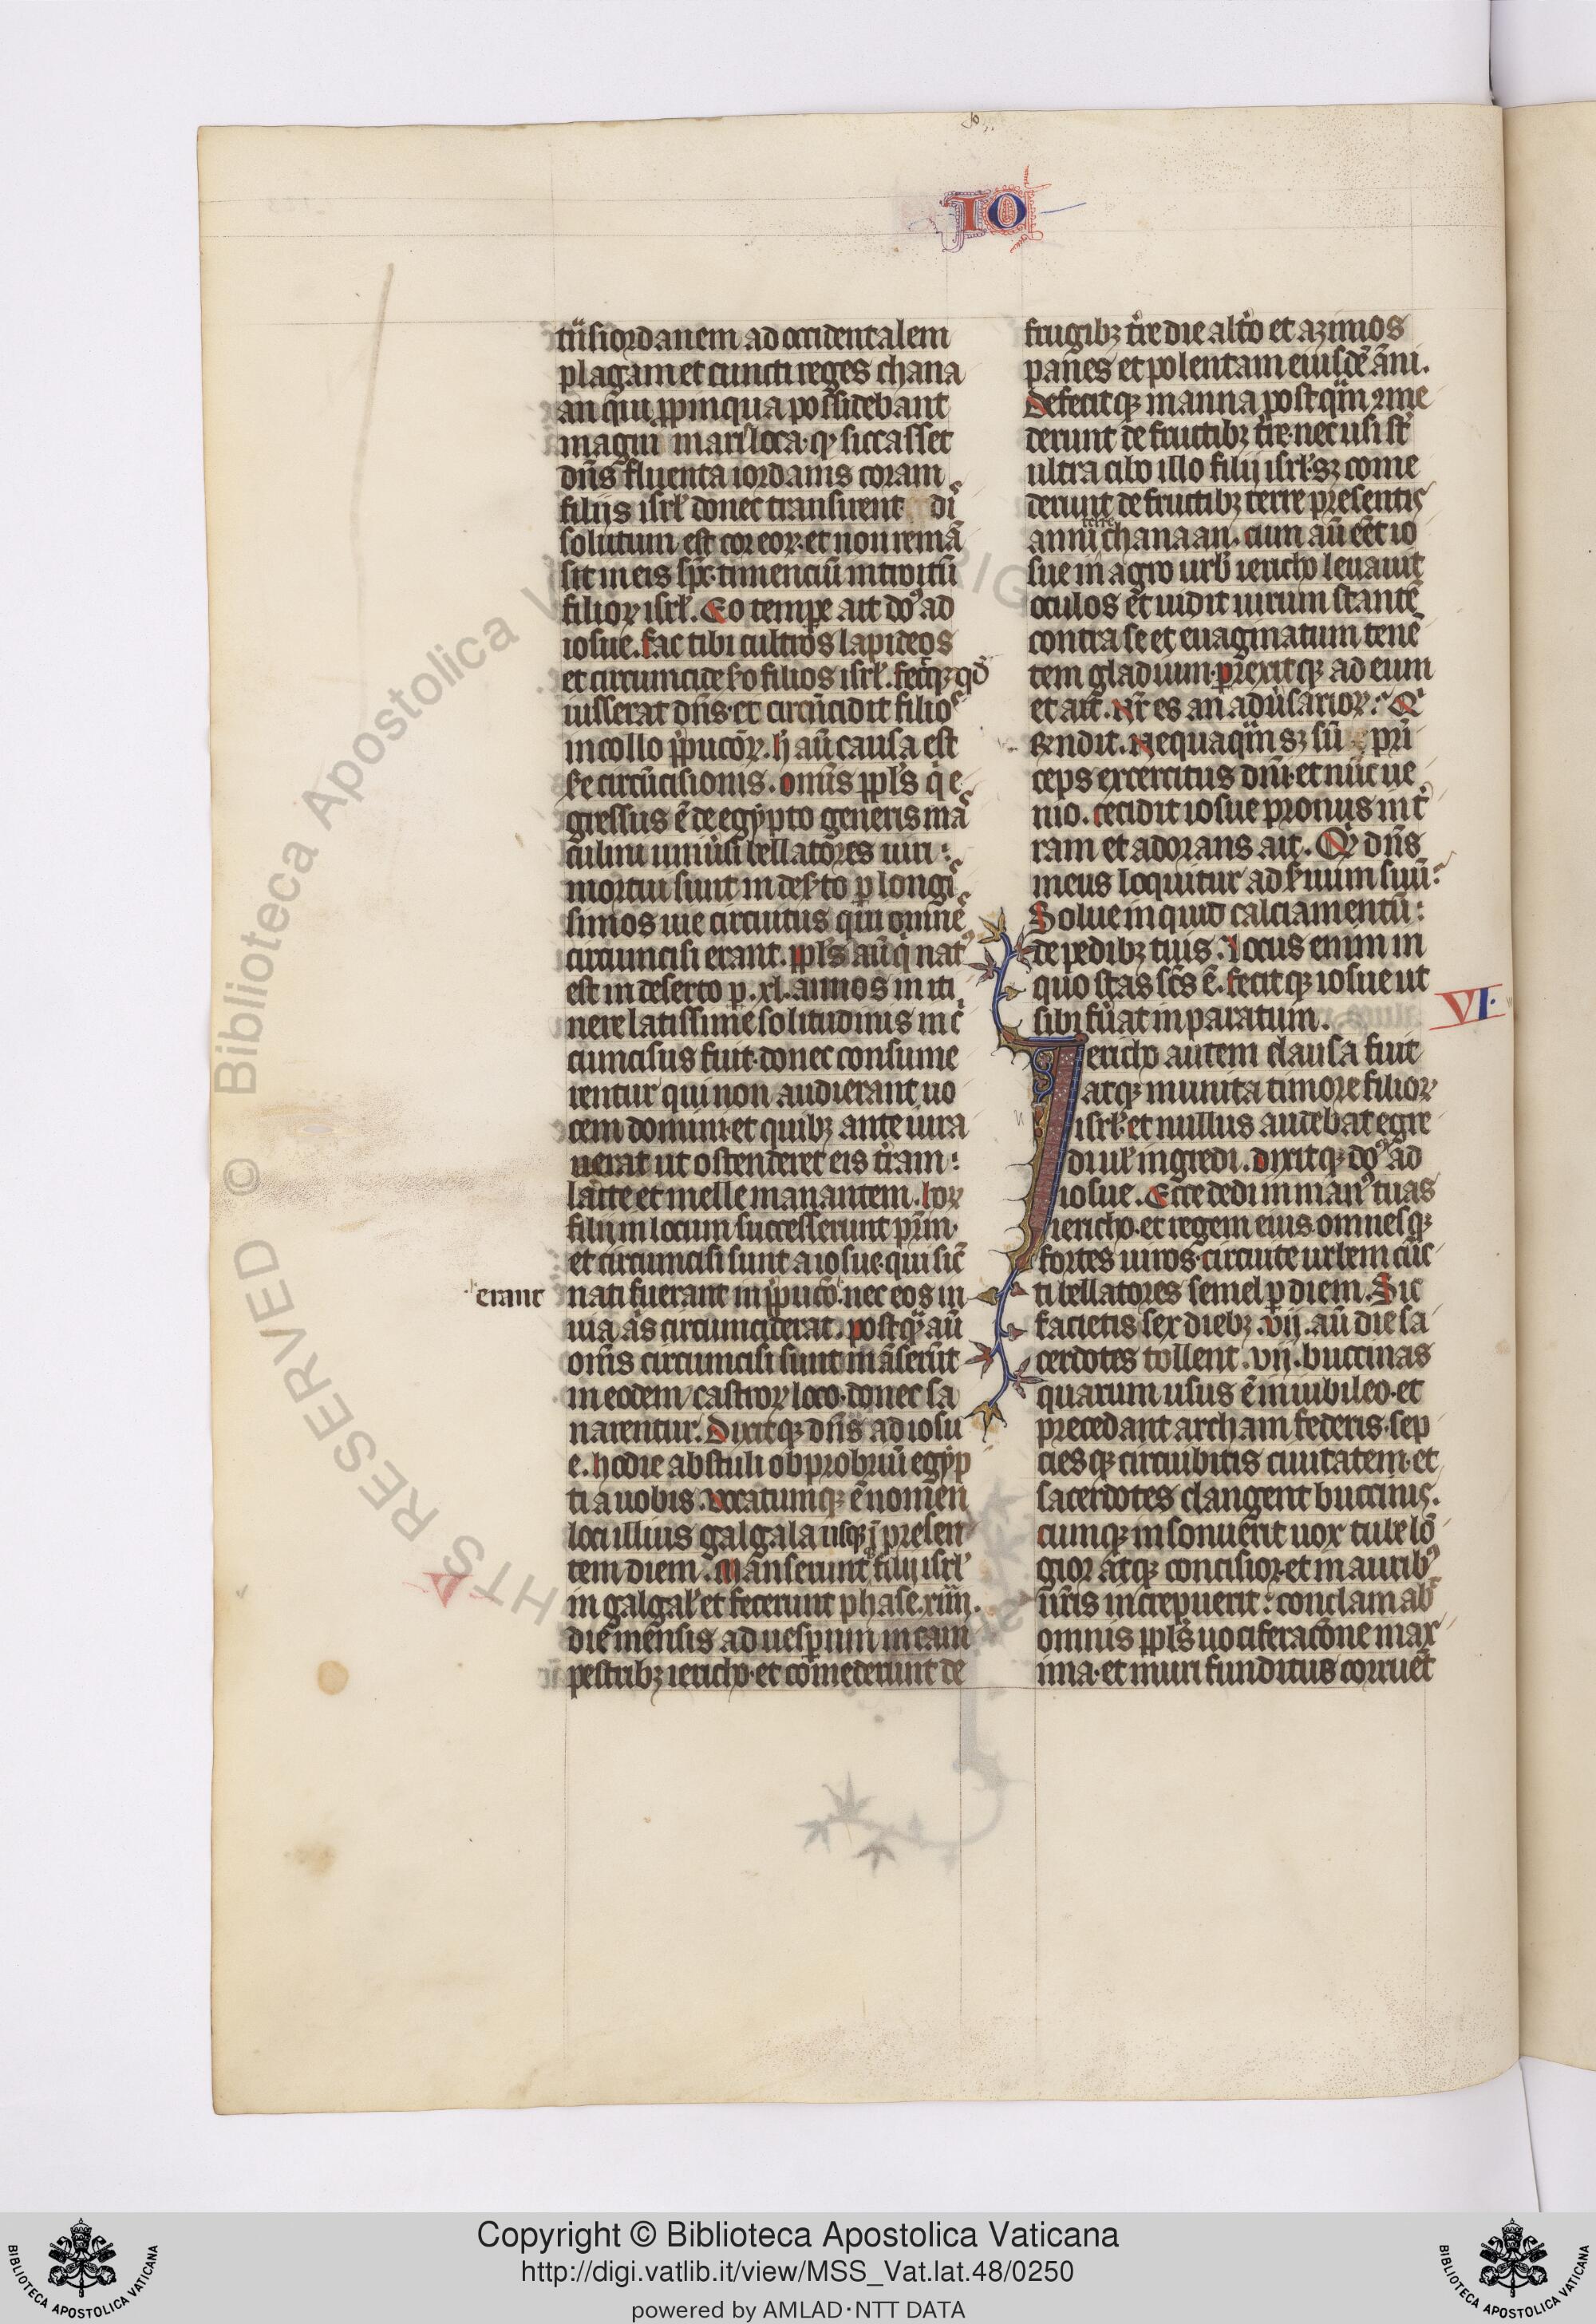 IO
tᷣnsiordanem ad occidentalem
plagam et cuncti reges chana
an qui ꝓpinqua possidebant
magni maris loca. ꝙ siccasset
dn̄s fluenta iordanis coram
filijs isrl̓ donec transirent diſ
solutum est cor eoꝝ. et non remā
sit in eis sp̄c timenciū introitū
filioꝝ isrl̓. Eo tempe ait do᷒ ad
iosue. fac tibi cultros lapideos
et circumcide s̓o filios isrl̓. fecitqꝫ qd̓
iusserat dn̄s. et circūcidit filios
in collo p̄pucioꝝ. h̓ aū causa est
s̓e circūcisionis. omīs ppl̓s qͥ e
gressus ē de egypto generis maſ
culini uniu̓si bellatores uiri:
mortui sunt in des̓to ꝑ longiſ
simos uie circuitus qui omneſ
circumcisi erant. ppl̓s aū qͥ nat᷒
est in deserto ꝑ .xl. annos in iti
nere latissime solitudinis inc̄
cumcisus fuit. donec consume
rentur qui non audierant uo
cem domini. et quibꝫ ante iura
uerat ut ostenderet eis tr̓am:
lacte et melle manantem. hoꝝ
filij in locum successerunt prm̄.
et circumcisi sunt a iosue. qui sic̄
erant
nati fuerant in p̄pucio. nec eos in
uia aſ̄ circumciderat. postqͣ aū
omīs circumcisi sunt māserūt
in eodem castroꝝ loco. donec sa
narentur. Dixitqꝫ dn̄s ad iosu
e. hodie abstuli obprobriū egyp
ti a uobis. uocatumqꝫ ē nomen
loci illius galgala usqꝫ ī presen
tem diem. Manserunt filij isrl̓
in galgal̓ et fecerunt phase .xiiij.
die mensis ad uesꝑum in cam
pestribꝫ iericho. et comederunt de
frugibꝫ tr̓e die alto̓ et azimos
panes et polentam eiusdē āni.
Defecitqꝫ manna postqͣm ꝯme
derunt de fructibꝫ tr̓e. nec usi st̄
ultra cibo illo filij isrl̓. sꝫ come
derunt de fructibꝫ terre presentis
terre
anni chanaan. cum aū eēt io
sue in agro urb̓ iericho leuauit
oculos et̄ uidit uirum stantē
contra se et euaginatum tenē
tem gladium. ꝑrexitqꝫ ad eum
et ait. Nr̄ es an adu̓sarioꝝ: Q
r̄ndit. Nequaqͣm sꝫ sū prī
ceps exercitus dn̄i. et nūc ue
nio. cecidit iosue pronus in t̓
ram et adorans ait. Qͥd dn̄s
meus loquitur ad s̓uum suū:
Solue inquid calciamentū:
de pedibꝫ tuis. Locus enim in
quo stas sc̄s ē. fecitqꝫ iosue ut
sibi fu̓at inparatum.
VI.
Iericho autem clausa fuit
atqꝫ munita timore filioꝝ
isrl̓. et nullus audebat egre
di aut̓ ingredi. dixitqꝫ do᷒ ad
iosue. Ecce dedi in man᷒ tuas
iericho. et regem eius. omnesqꝫ
fortes uiros. circuite urbem cūc
ti bellatores semel ꝑ diem. Sic
facietis sex diebꝫ. vij. aū die sa
cerdotes tollent .vij. buccinas
quarum usus ē in iubileo. et
precedant archam federis. sep
ciesqꝫ circuibitis ciuitatem. et
sacerdotes clangent buccinis.
cumqꝫ insonuerit uox tube lō
gior atqꝫ concisior. et in aurib᷒
ur̄is increpuerit: conclamab̓
omnis ppl̓s uociferacōne max
ima. et muri funditus corruēt
Copyright © Biblioteca Apostolica Vaticana
http://digi.vatlib.it/view/MSS_Vat.lat.48/0250
powered by AMLAD·NTT DATA
BIBLIOTECA APOSTOLICA VATICANA
BIBLIOTECA APOSTOLICA VATICANA